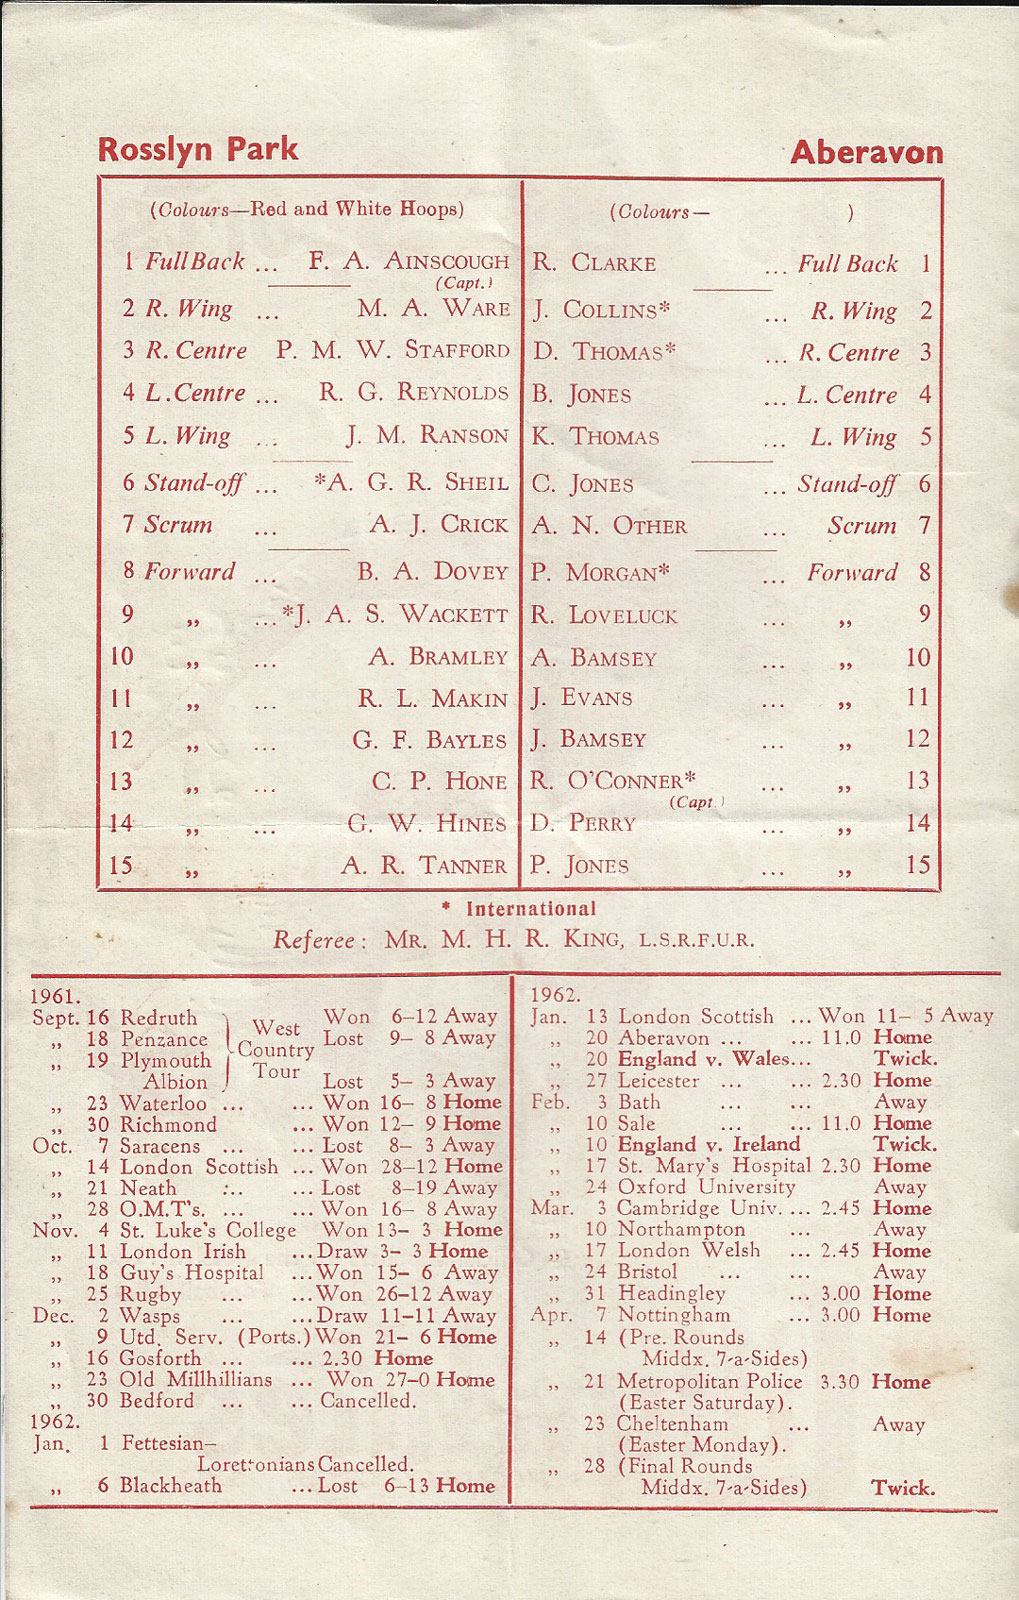 Rosslyn Park
Aberavon
(Colours—Red and White Hoops)
1 Full Back ... F. A. AINSCOUGH
(Capt.)
2 R. Wing ... M. A. WARE
3 R. Centre P. M. W. STAFFORD
4 L. Centre ... R. G. REYNOLDS
5 L. Wing ... J. M. RANSON
6 Stand-off ... *A. G. R. SHEIL
7 Scrum ... A. J. CRICK
8 Forward ... B. A. DOVEY
9 „ ... *J. A. S. WACKETT
10 „ ... A. BRAMLEY
11 „ ... R. L. MAKIN
12 „ ... G. F. BAYLES
13 „ ... C. P. HONE
14 „ ... G. W. HINES
15 „ ... A. R. TANNER
(Colours— )
R. CLARKE ... Full Back 1
J. COLLINS* ... R. Wing 2
D. THOMAS* ... R. Centre 3
B. JONES ... L. Centre 4
K. THOMAS ... L. Wing 5
C. JONES ... Stand-off 6
A. N. OTHER ... Scrum 7
P. MORGAN* ... Forward 8
R. LOVELUCK ... „ 9
A. BAMSEY ... „ 10
J. EVANS ... „ 11
J. BAMSEY ... „ 12
R. O'CONNER* ... „ 13
(Capt.)
D. PERRY ... „ 14
P. JONES ... „ 15
* International
Referee: MR. M. H. R. KING, L.S.R.F.U.R.
1961.
Sept. 16 Redruth Won 6–12 Away
„ 18 Penzance Lost 9– 8 Away
„ 19 Plymouth
Albion Lost 5– 3 Away
West
Country
Tour
„ 23 Waterloo ... ... Won 16– 8 Home
„ 30 Richmond ... Won 12– 9 Home
Oct. 7 Saracens ... ... Lost 8– 3 Away
„ 14 London Scottish ... Won 28–12 Home
„ 21 Neath ... ... Lost 8–19 Away
„ 28 O.M.T's. ... ... Won 16– 8 Away
Nov. 4 St. Luke's College Won 13– 3 Home
„ 11 London Irish ... Draw 3– 3 Home
„ 18 Guy's Hospital ... Won 15– 6 Away
„ 25 Rugby ... ... Won 26–12 Away
Dec. 2 Wasps ... ... Draw 11–11 Away
„ 9 Utd. Serv. (Ports.) Won 21– 6 Home
„ 16 Gosforth ... ... 2.30 Home
„ 23 Old Millhillians ... Won 27–0 Home
„ 30 Bedford ... ... Cancelled.
1962.
Jan. 1 Fettesian–
Lorettonians Cancelled.
„ 6 Blackheath ... Lost 6–13 Home
1962.
Jan. 13 London Scottish ... Won 11– 5 Away
„ 20 Aberavon ... ... 11.0 Home
„ 20 England v. Wales... Twick.
„ 27 Leicester ... ... 2.30 Home
Feb. 3 Bath ... ... Away
„ 10 Sale ... ... 11.0 Home
„ 10 England v. Ireland Twick.
„ 17 St. Mary's Hospital 2.30 Home
„ 24 Oxford University Away
Mar. 3 Cambridge Univ. ... 2.45 Home
„ 10 Northampton ... Away
„ 17 London Welsh ... 2.45 Home
„ 24 Bristol ... ... Away
„ 31 Headingley ... 3.00 Home
Apr. 7 Nottingham ... 3.00 Home
„ 14 (Pre. Rounds
Middx. 7-a-Sides)
„ 21 Metropolitan Police 3.30 Home
(Easter Saturday).
„ 23 Cheltenham ... Away
(Easter Monday).
„ 28 (Final Rounds
Middx. 7-a-Sides) Twick.